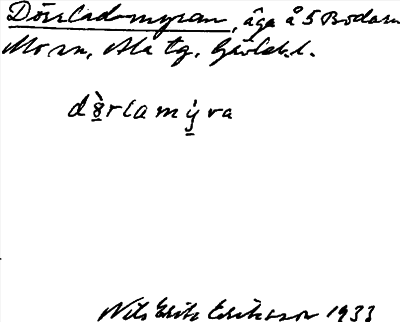 Dörrladsmyran, äga å 5 Bodarn
Mom, Ala tg, Gävleb.l.
dȍrlamýra
Nils Erik Eriksson 1933